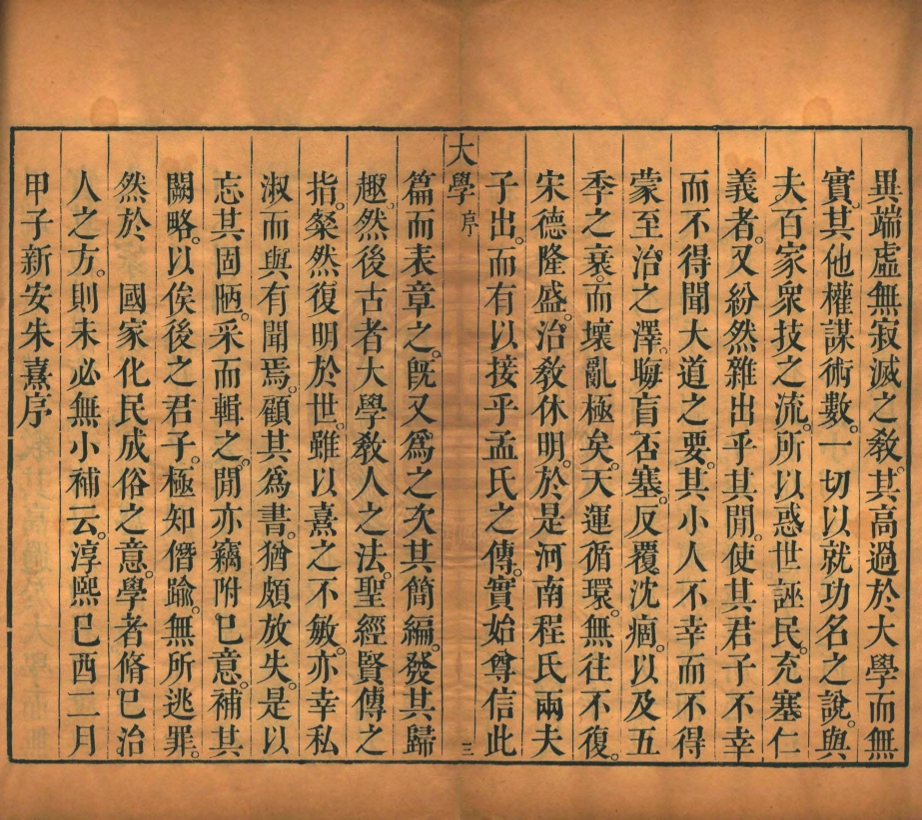 異端虛無寂滅之敎。其高過於大學而無
實。其他權謀術數。一切以就功名之說。與
夫百家衆技之流。所以惑世誣民。充塞仁
義者。又紛然雜出乎其閒。使其君子不幸
而不得聞大道之要。其小人不幸而不得
蒙至治之澤。晦盲否塞。反覆沈痼。以及五
季之衰。而壞亂極矣。天運循環。無往不復。
宋德隆盛。治敎休明。於是河南程氏兩夫
子出。而有以接乎孟氏之傳。實始尊信此
大學 序 三
篇而表章之。旣又爲之次其簡編。發其歸
趣。然後古者大學敎人之法。聖經賢傳之
指。粲然復明於世。雖以熹之不敏。亦幸私
淑而與有聞焉。顧其爲書。猶頗放失。是以
忘其固陋。采而輯之。閒亦竊附已意。補其
闕略。以俟後之君子。極知僭踰。無所逃罪。
然於 國家化民成俗之意。學者脩已治
人之方。則未必無小補云。淳熙已酉二月
甲子新安朱熹序